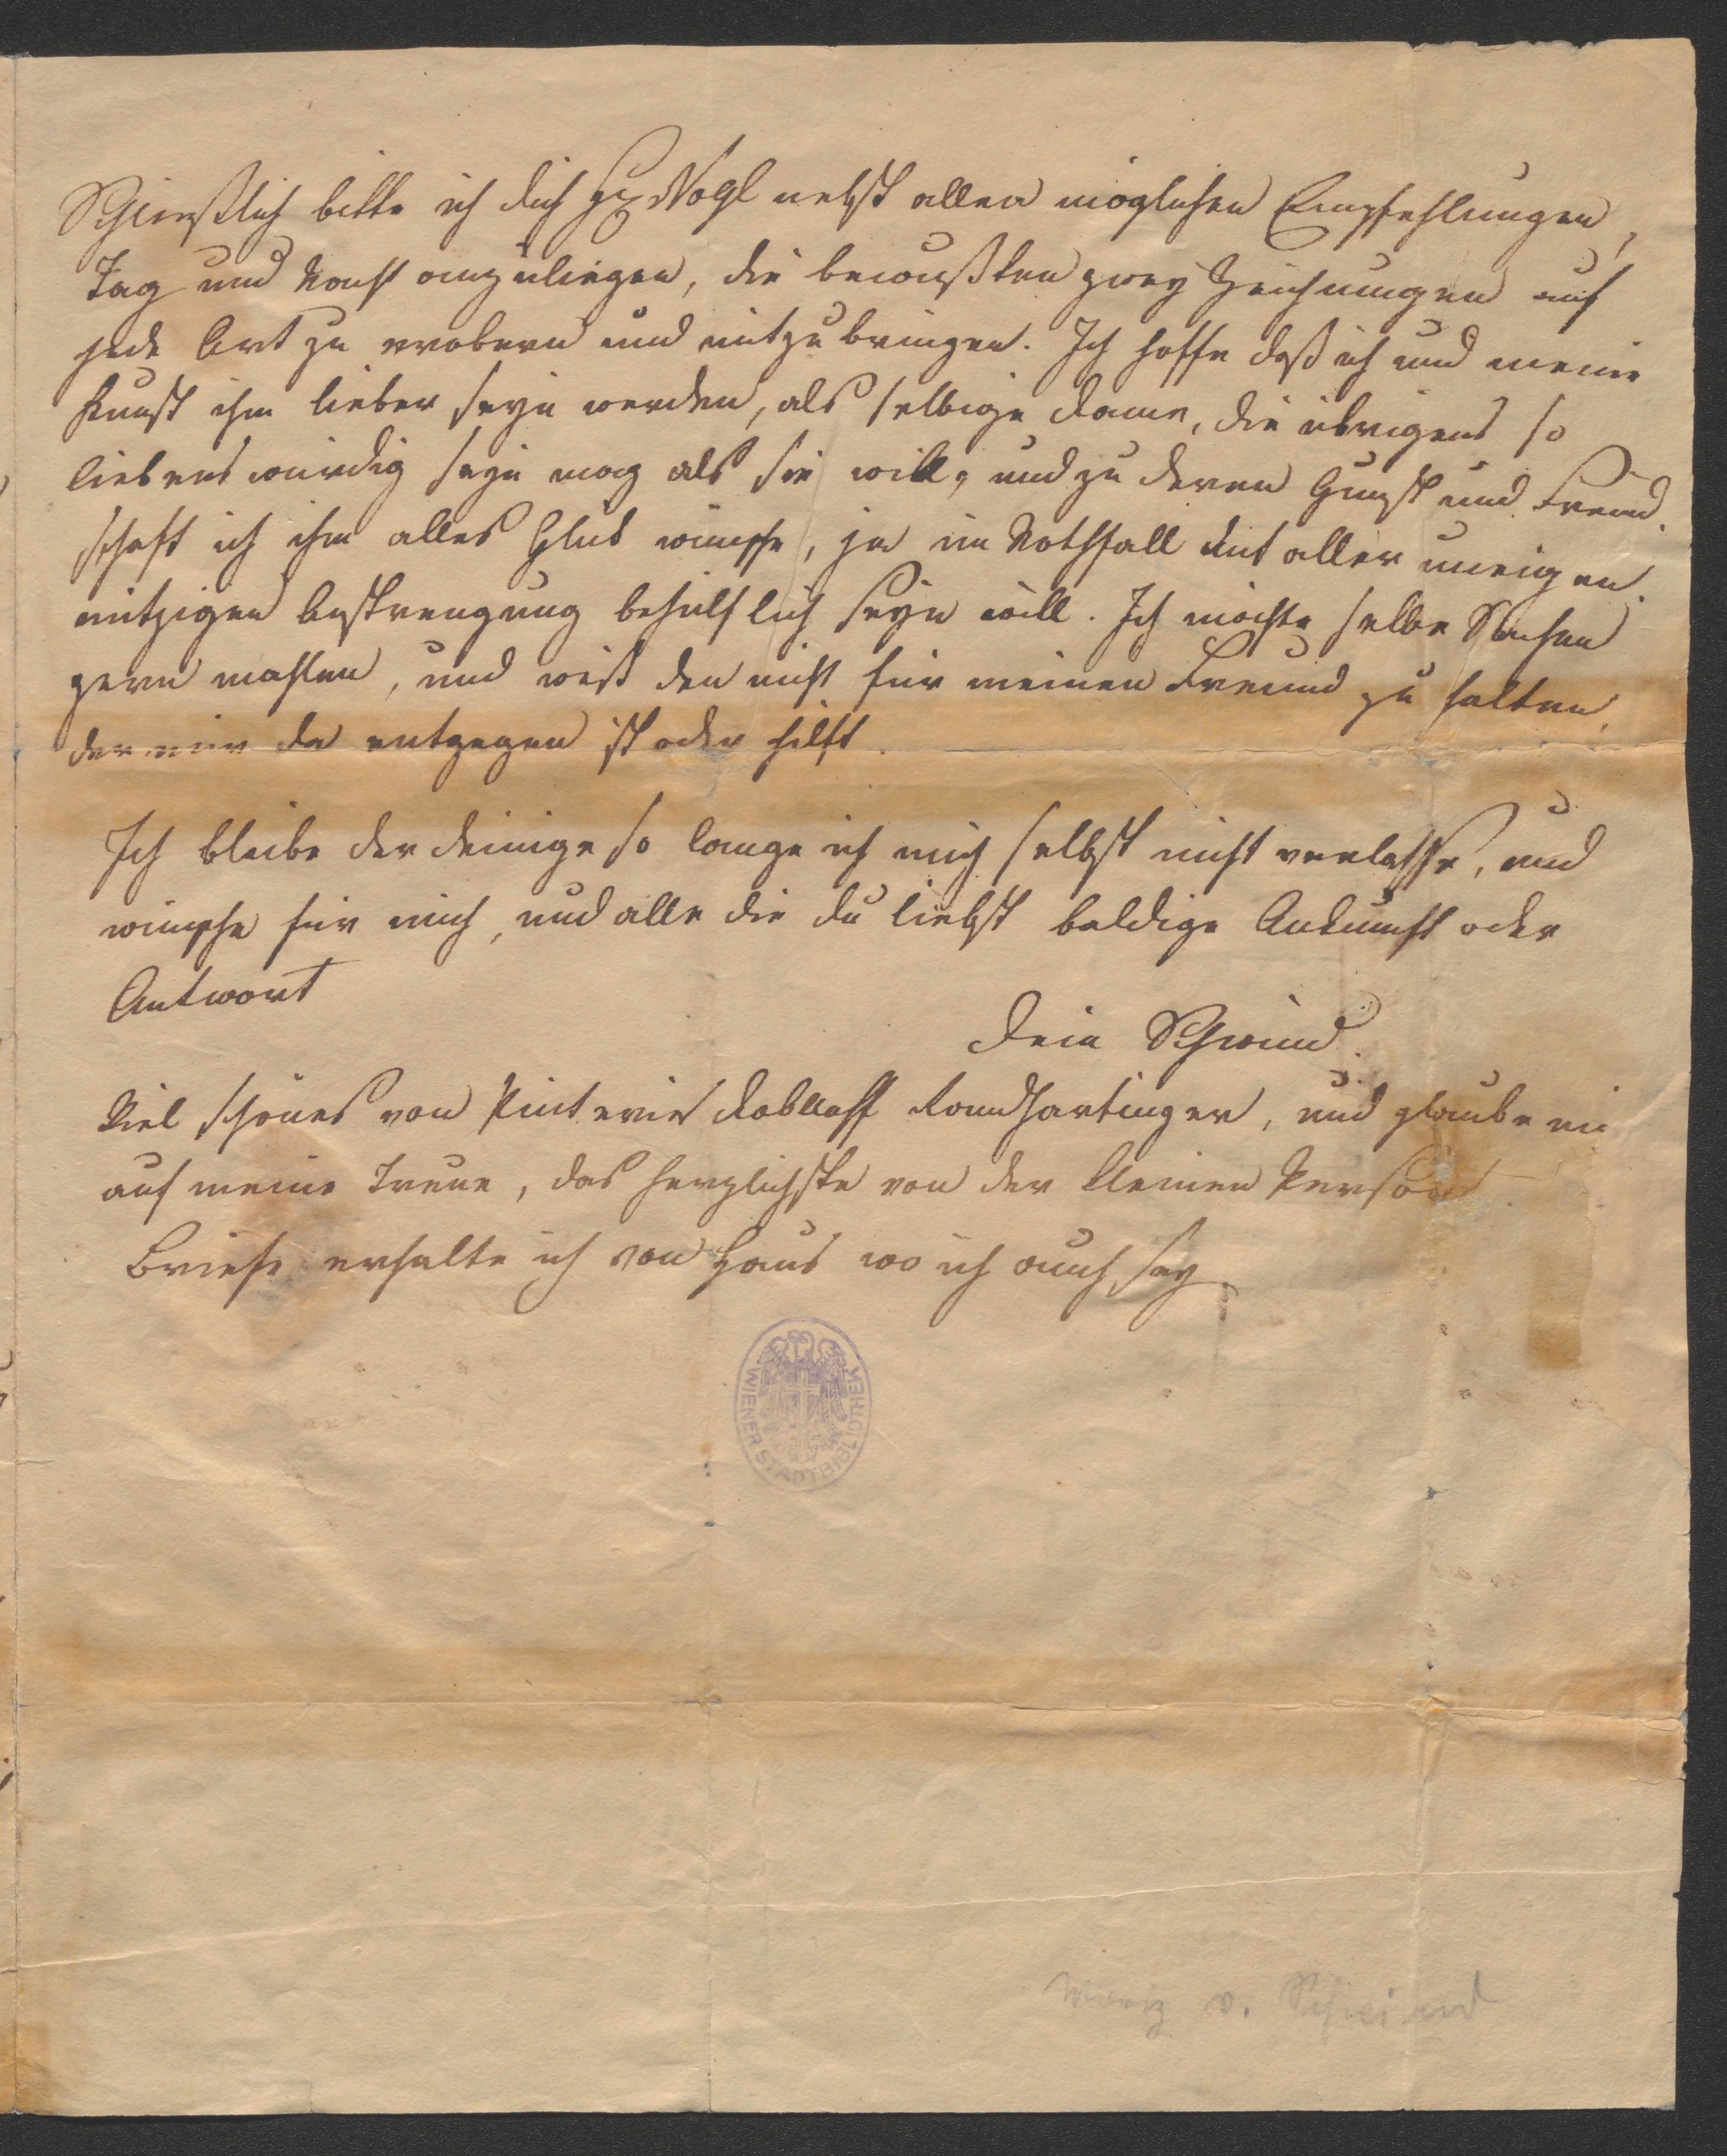 Schließlich bitte ich dich Hr Vogl nebst allen möglichen Empfehlungen,
Tag und Nacht anzuliegen, die bewußten zwey Zeichnungen auf
jede Art zu erobern und mitzubringen. Ich hoffe daß ich und meine
Kunst ihm lieber seyn werden, als selbige Dame, die übrigens so
liebenswürdig seyn mag als sie will, und zu deren Gunst und Freund-
schaft ich ihm alles Glük wünsche, ja im Nothfall mit aller uneigen-
nützigen Anstrengung behülflich seyn will. Ich möchte selbe Sachen
gern mahlen, und weiß den nicht für meinen Freund zu halten,
der mir da entgegen ist oder hilft.
Ich bleibe der deinige so lange ich mich selbst nicht verlasse, und
wünsche für mich, und alle die du liebst baldige Ankunft oder
Antwort
Dein Schwind.
Viel schönes von Pinteris Doblhoff Randhartinger, und glaube mir
auf meine Treue, das herzlichste von der kleinen Person.
Briefe erhalte ich von Haus wo ich auch sey.
WIENER STADTBIBLIOTHEK
Moriz v. Schwind